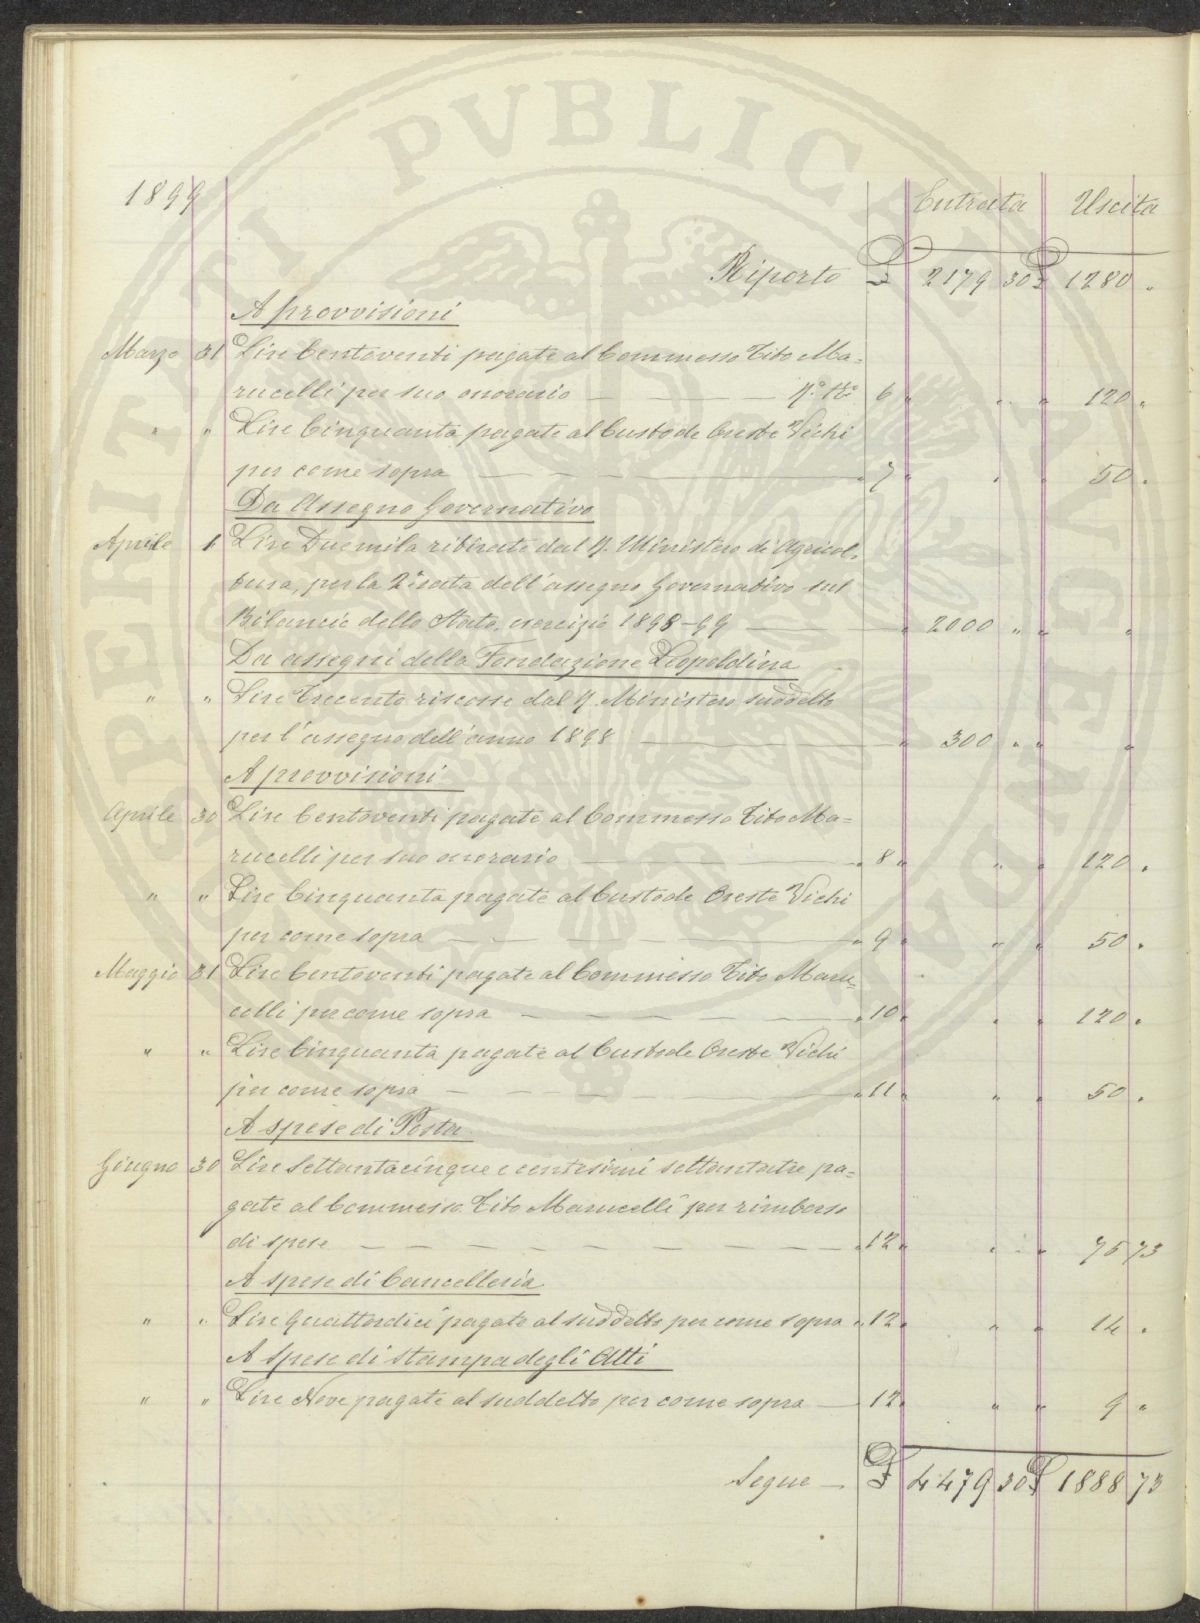 PROSPERITATI PVBLICAE AVGENDAE
1899 Entrata Uscita
Riporto £ 2179 30 £ 1280 "
A provvisioni
Marzo 31 Lire Centoventi pagate al Commesso Tito Ma=
rucelli per suo onorario — — — N.° 6 " " " 120 "
" " Lire Cinquanta pagate al Custode Oreste Vichi
per come sopra — — — " 7 " " " 50 "
Da Assegno Governativo
Aprile 1 Lire Duemila ritirate dal R. Ministero di Agricol=
tura, per la 2ª rata dell'assegno Governativo sul
Bilancio dello Stato, esercizio 1898-99 — " 2000 " " "
Da assegni della Fondazione Leopoldina
" " Lire Trecento riscosse dal R. Ministero suddetto
per l'assegno dell'anno 1898 — " 300 " " "
A provvisioni
Aprile 30 Lire Centoventi pagate al Commesso Tito Ma=
rucelli per suo onorario — " 8 " " " 120 "
" " Lire Cinquanta pagate al Custode Oreste Vichi
per come sopra — — — " 9 " " " 50 "
Maggio 31 Lire Centoventi pagate al Commesso Tito Maru=
celli per come sopra — — — " 10 " " " 120 "
" " Lire Cinquanta pagate al Custode Oreste Vichi
per come sopra — — — " 11 " " " 50 "
A spese di Posta
Giugno 30 Lire Settantacinque e centesimi settantatre pa=
gate al Commesso Tito Marucelli per rimborso
di spese — — — " 12 " " " 75 73
A spese di Cancelleria
" " Lire Quattordici pagate al suddetto per come sopra " 12 " " " 14 "
A spese di stampa degli Atti
" " Lire Nove pagate al suddetto per come sopra — 12 " " " 9 "
Segue — £ 4479 30 £ 1888 73